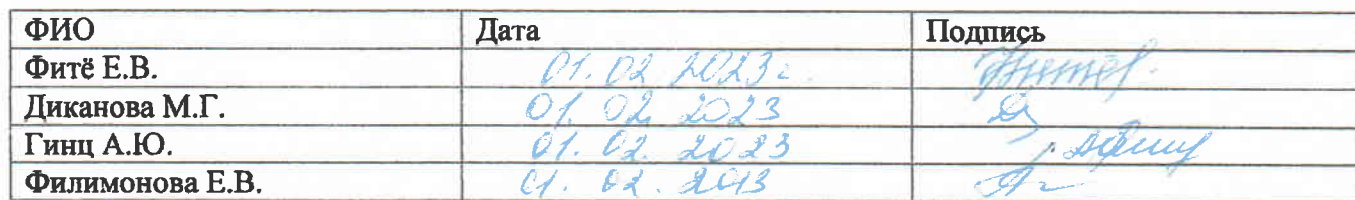 ФИО Дата Подпись
Фитё Е.В. 01.02.2023г.
Диканова М.Г. 01.02.2023
Гинц А.Ю. 01.02.2023
Филимонова Е.В. 01.02.2013